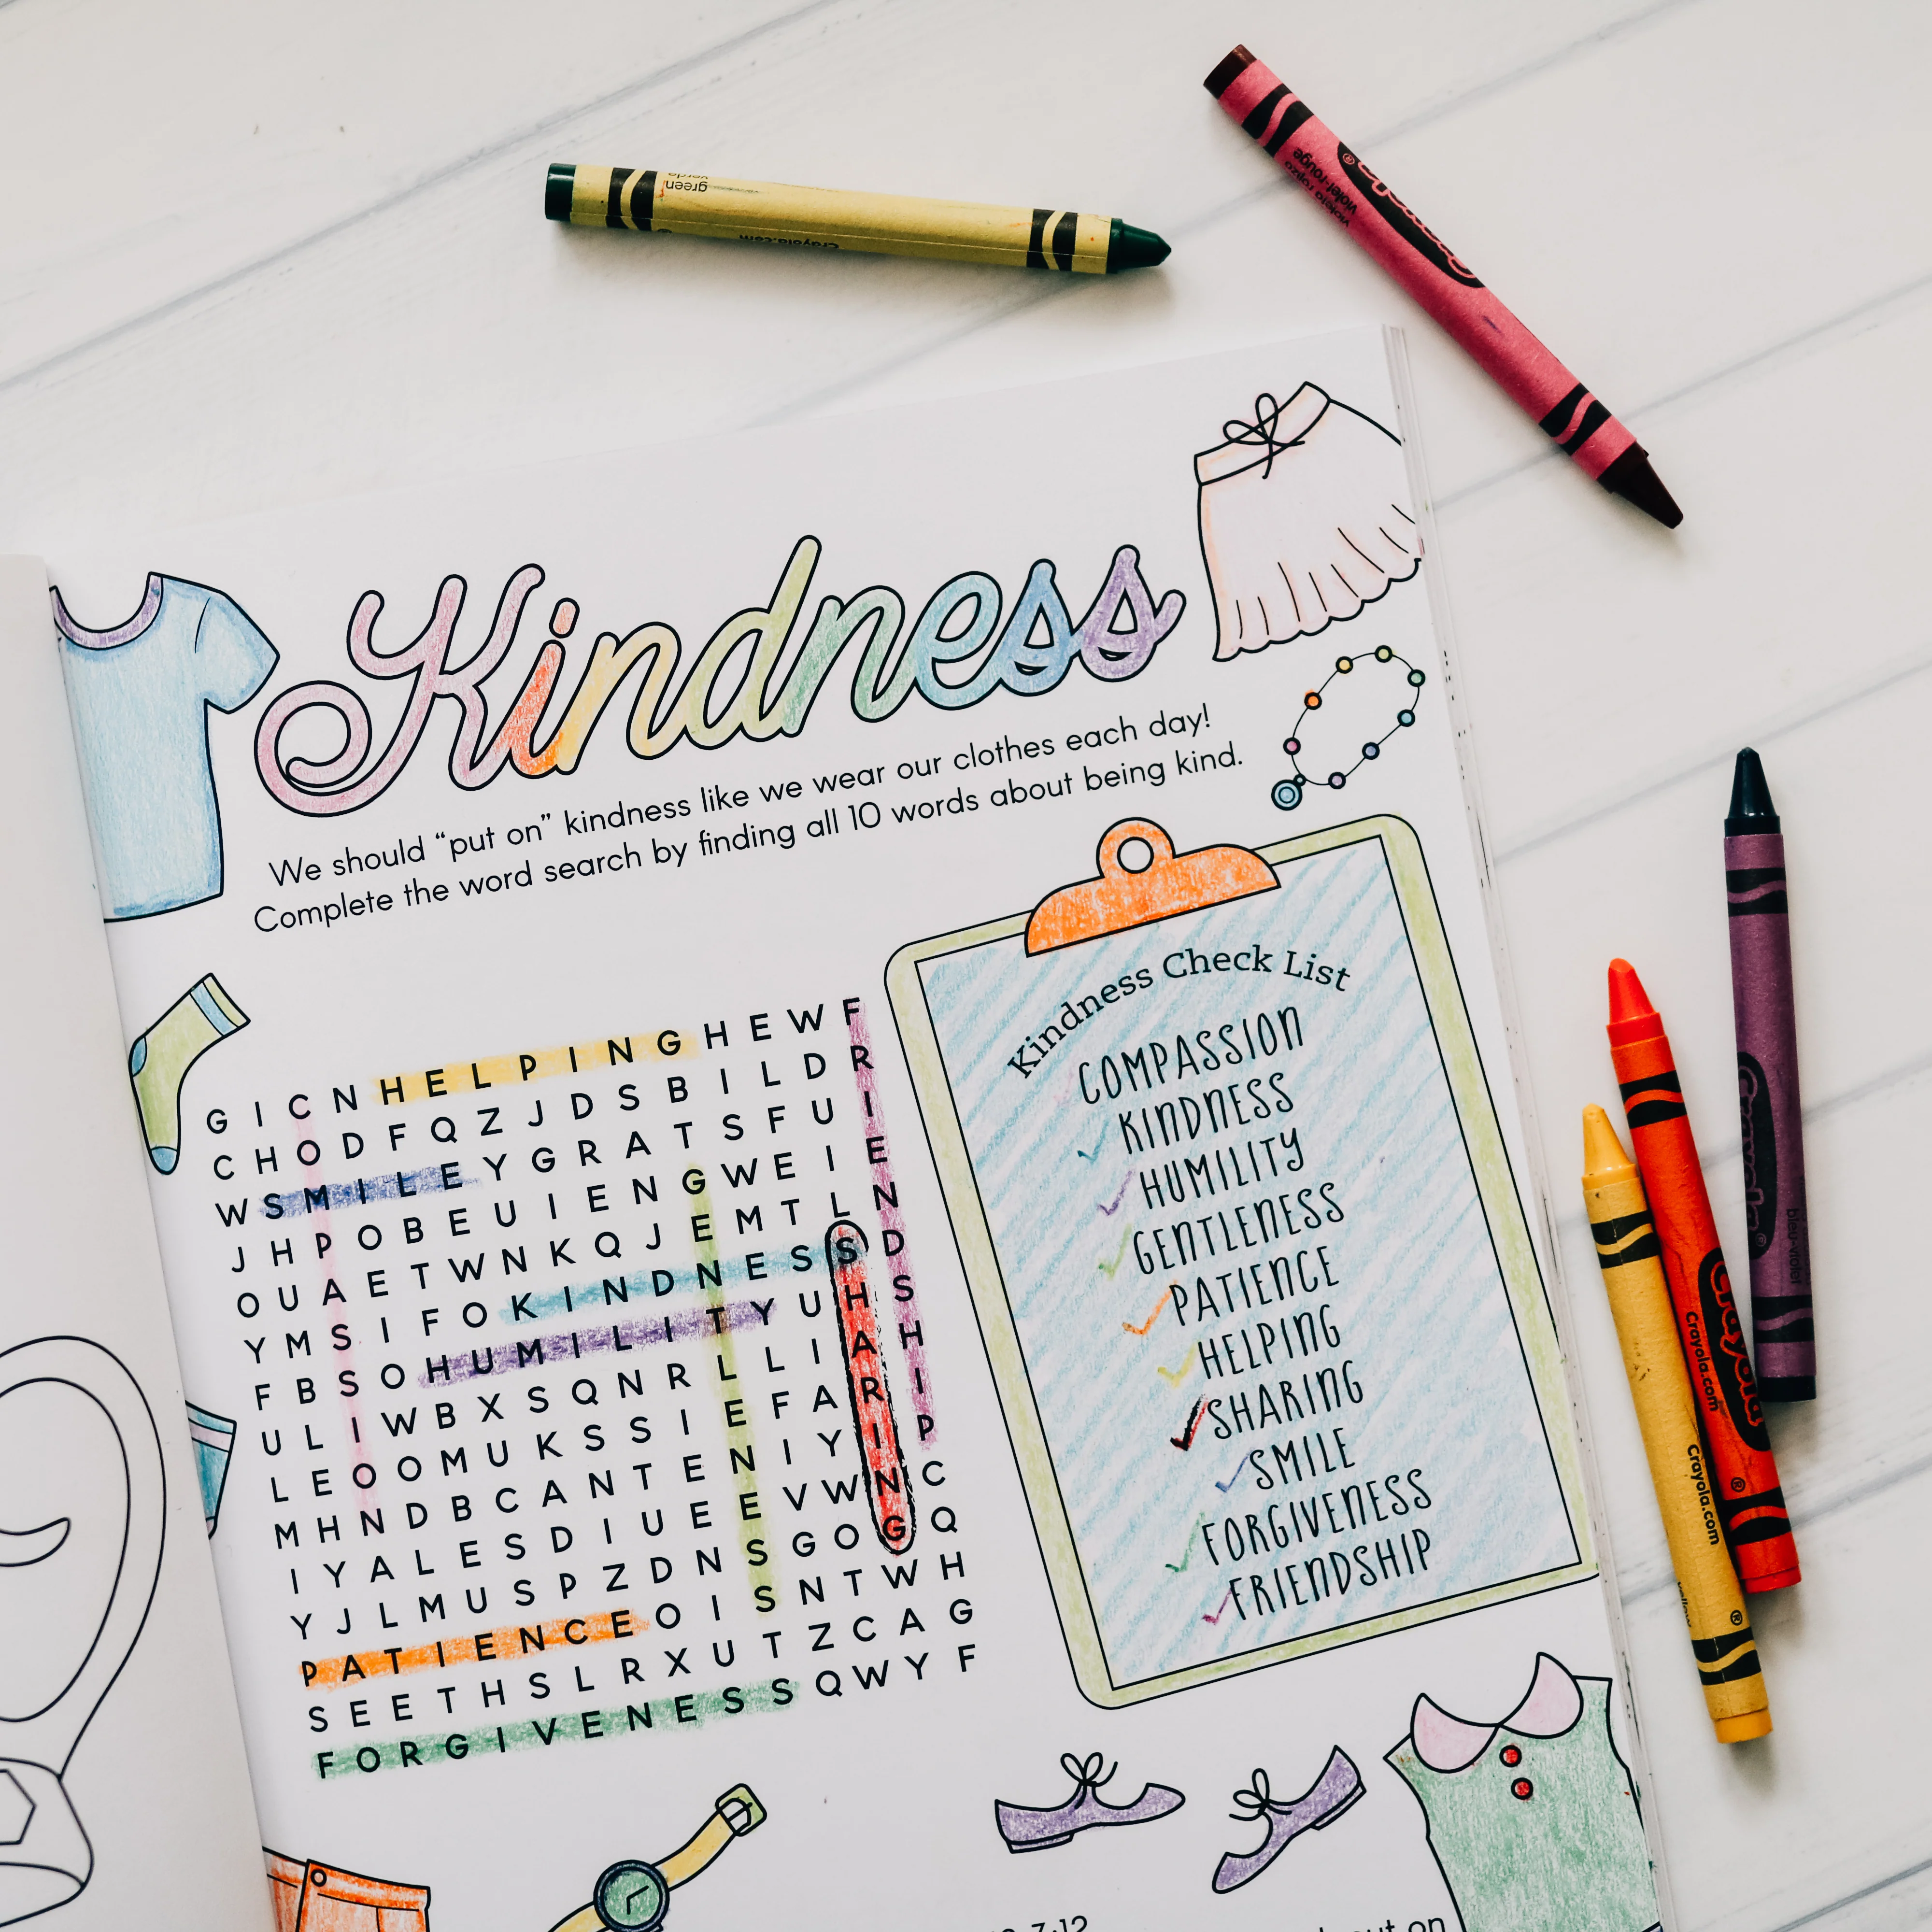 green
Crayola.com
violeta rojizo
violet-rouge
Crayola
®
Kindness
We should “put on” kindness like we wear our clothes each day!
Complete the word search by finding all 10 words about being kind.
G I C N H E L P I N G H E W F
C H O D F Q Z J D S B I L D R
W S M I L E Y G R A T S F U I
J H P O B E U I E N G W E I E
O U A E T W N K Q J E M T L N
Y M S I F O K I N D N E S S D
F B S O H U M I L I T Y U H S
U L I W B X S Q N R L L I A H
L E O O M U K S S I E F A R I
M H N D B C A N T E N I Y I P
I Y A L E S D I U E E V W N C
Y J L M U S P Z D N S G O G Q
P A T I E N C E O I S N T W H
S E E T H S L R X U T Z C A G
F O R G I V E N E S S Q W Y F
Kindness Check List
COMPASSION
KINDNESS
HUMILITY
GENTLENESS
PATIENCE
HELPING
SHARING
SMILE
FORGIVENESS
FRIENDSHIP
Crayola
bleu-violet
Crayola
®
Crayola.com
Crayola.com
®
7:12
on